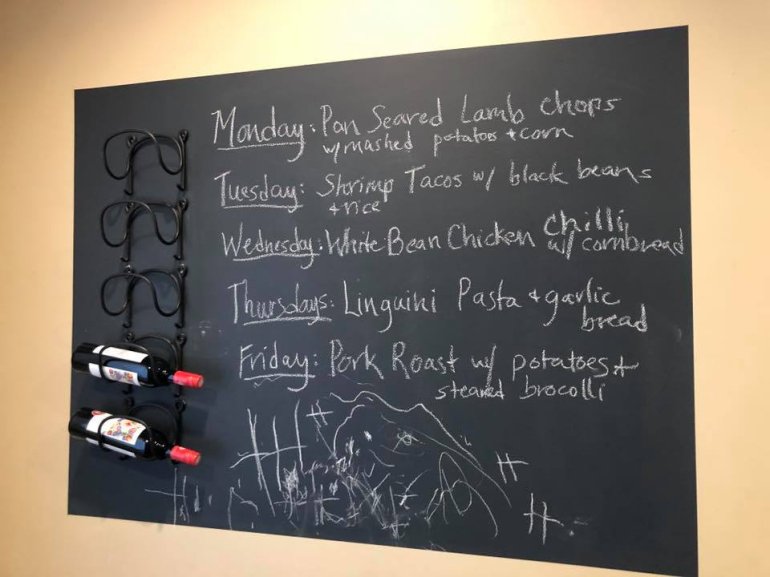 Monday: Pan Seared Lamb Chops
w/ mashed potatoes + corn
Tuesday: Shrimp Tacos w/ black beans
+ rice
Wednesday: White Bean Chicken Chilli
w/ cornbread
Thursdays: Linguini Pasta + garlic
bread
Friday: Pork Roast w/ potatoes +
steamed brocolli